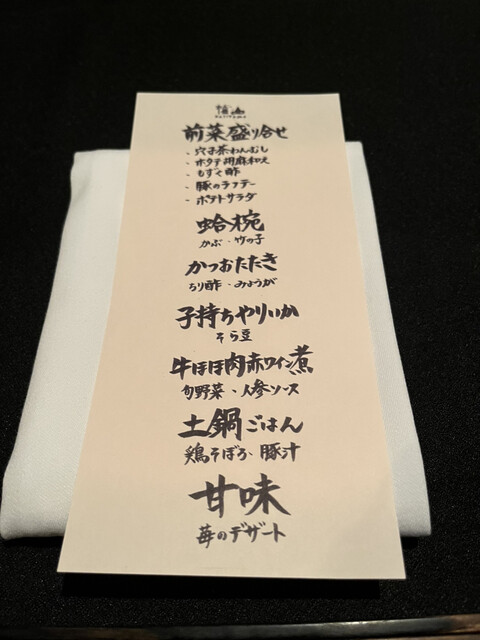 前菜盛り合せ
・穴子茶わんむし
・ホタテ胡麻和え
・もずく酢
・豚のラフテー
・ポテトサラダ
蛤椀
かぶ・竹の子
かつおたたき
ちり酢・みょうが
子持ちやりいか
そら豆
牛ほほ肉赤ワイン煮
旬野菜、人参ソース
土鍋ごはん
鶏そぼろ、豚汁
甘味
苺のデザート